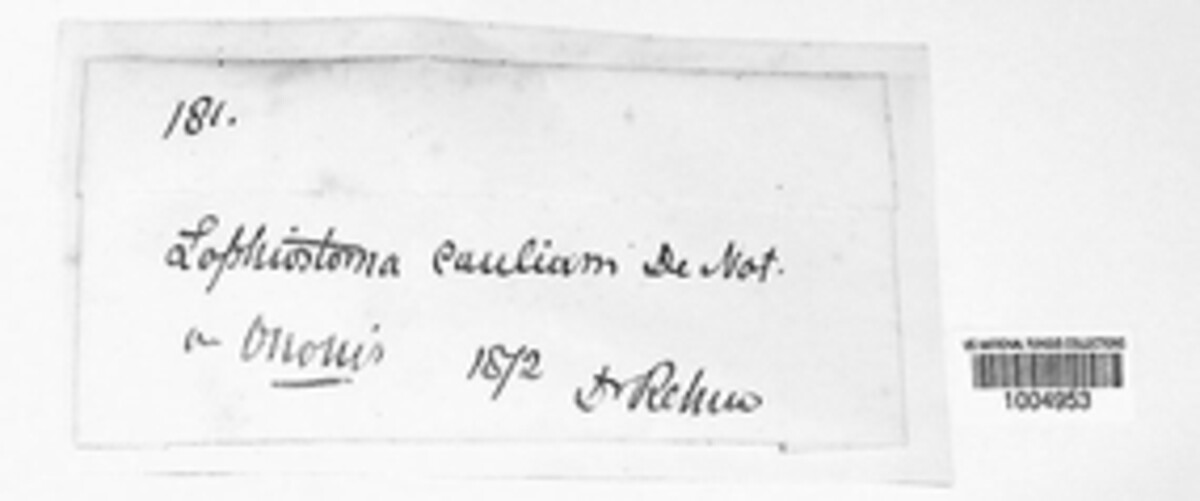 181.
Lophiostoma cauliam De Not.
on Ononis 1872 Dr Rehm
US NATIONAL FUNGUS COLLECTIONS
1004953